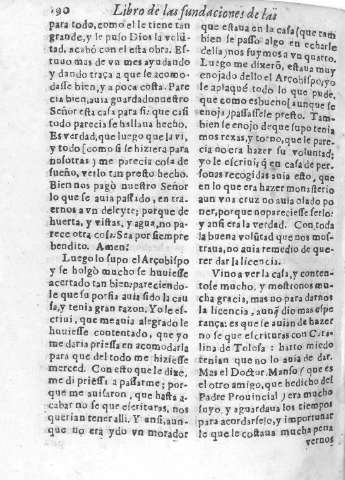 190 Libro de las fundaciones de las
para todo, como el le tiene tan
grande, y le puso Dios la volũ
tad, acabò con el esta obra. Es-
tuuo mas de vn mes ayudando
y dando traça a que se acomo-
dasse bien, y a poca costa. Pare
cia bien, auia guardado nuestro
Señor esta casa para si: que casi
todo parecia se hallaua hecho.
Es verdad, que luego que la vi,
y todo [como si se hiziera para
nosotras] me parecia cosa de
sueño, verlo tan presto hecho.
Bien nos pagò nuestro Señor
lo que se auia passado, en tra-
ernos a vn deleyte; porque de
huerta, y vistas, y agua, no pa-
rece otra cosa. Sea por siempre
bendito. Amen.
Luego lo supo el Arçobispo
y se holgò mucho se huuiesse
acertado tan bien, pareciendo-
le que su porfia auia sido la cau
sa, y tenia gran razon. Yo le es-
criui, que me auia alegrado le
huuiesse contentado, que yo
me daria priessa en acomodarla
para que del todo me hiziesse
merced. Con esto que le dixe,
me di priessa a passarme; por-
que me auisaron, que hasta a-
cabar no se que escrituras, nos
querian tener alli. Y ansi, aun-
que no era ydo vn morador
que estaua en la casa [que tam
bien se passò algo en echarle
della] nos fuymos a vn quarto.
Luego me dixerõ, estaua muy
enojado dello el Arçobispo, yo
le aplaquè todo lo que pude,
que como es bueno [aunque se
enoja] passasele presto. Tam-
bien se enojo de que supo tenia
mos rexas, y torno, que le pare-
cia no era hazer su voluntad;
yo le escriui; q̃ en casa de per-
sonas recogidas auia esto, que
en lo que era hazer monasterio
aun vna cruz no auia osado po
ner, porque no pareciesse serlo:
y ansi era la verdad. Con toda
la buena volũtad que nos mos-
traua, no auia remedio de que-
rer dar la licencia.
Vino a ver la casa, y conten-
tose mucho, y mostronos mu-
cha gracia, mas no para darnos
la licencia, aunq̃ dio mas espe-
rança: es que se auian de hazer
no se que escrituras con Cata-
lina de Tolosa: harto miedo
tenian que no la auia de dar.
Mas el Doctor Manso [que es
el otro amigo, que he dicho del
Padre Prouincial] era mucho
suyo, y aguardaua los tiempos
para acordarselo, y importunar
le que le costaua mucha pena
vernos